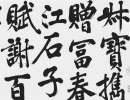 叔寶攜
贈富春
江石子
賦謝百